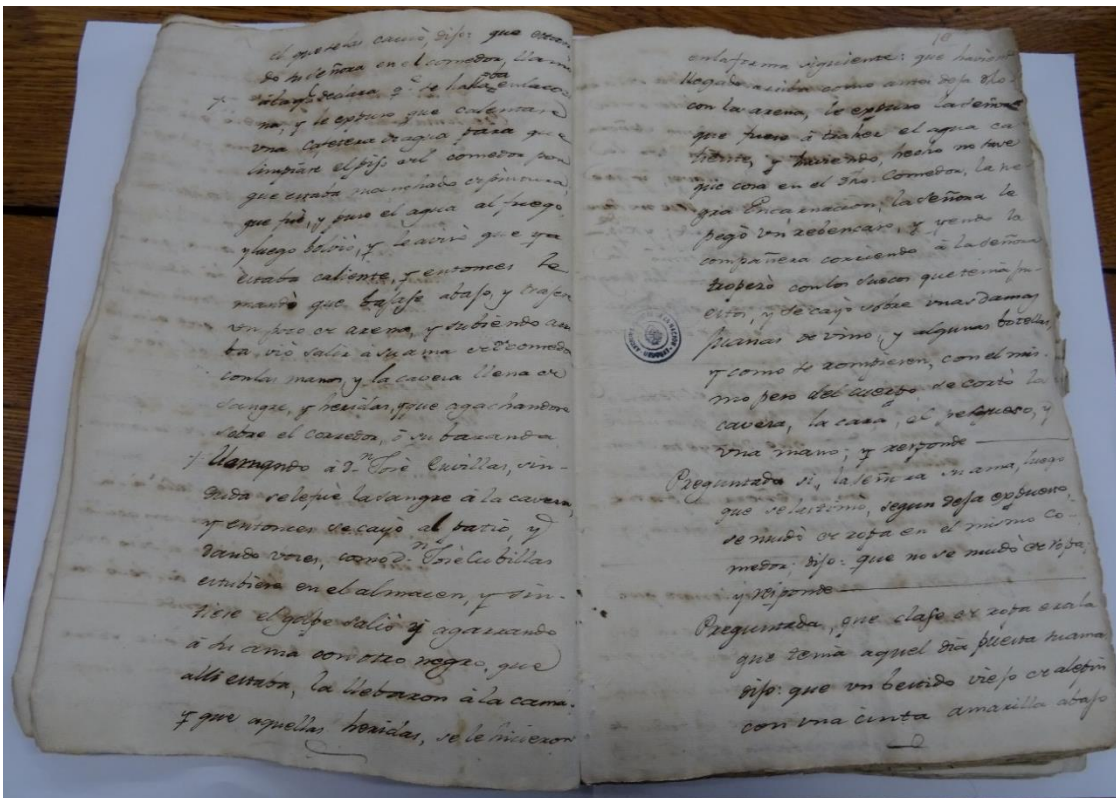 el que se las causó, dijo: que estan-
do su Señora en el comedor, llamó
à la q.e declara q.e se hallaba en la coci-
na, y le expuso, que calentase
una cafetera de agua para que
limpiase el piso del comedor por
que estaba manchado de pintura,
que fué, y puso el agua al fuego
y luego bolvió, y le avisó que ya
estaba caliente, y entonces le
mandó que bajase abajo, y trajese
un poco de arena, y subiendo arri-
ba, vió salir à su ama del comedor
con las manos, y la cavesa llena de
sangre, y heridas, y que agachandose
sobre el corredor, ò su baranda
llamando à D.n José Cuvillas, sin-
duda se le fue la sangre à la cavesa,
y entonces se cayó al patio, y
dando voces, como D.n José Cubillas
estubiese en el almacen, y sin-
tiese el golpe salió y agarrando
à su ama con otro negro, que
alli estaba, la llebaron à la cama.
y que aquellas heridas, se le hicieron
10
en la forma siguiente: que haviendo
llegado arriba como antes deja dho.
con la arena, le expuso la Señora
que fuese à traher el agua ca-
liente, y haviendo, hecho no sé
que cosa en el dho. Comedor, la ne-
gra Encarnacion, la Señora le
pegó un rebencaso, y yendo la
compañera corriendo à la Señora
tropesó con los suecos que tenia pu-
estos, y se cayó sobre unas dama-
juanas de vino, y algunas botellas,
y como se rompieron, con el mis-
mo peso del cuerpo, se cortó la
cavesa, la cara, el pescueso, y
una mano; y responde
Preguntada si, la Señora su ama, luego
que se lastimó, segun deja expuesto,
se mudó de ropa en el mismo Co-
medor: dijo: que no se mudó de ropa,
y responde
Preguntada, que clase de ropa era la
que tenia aquel dia puesta su ama
dijo: que un bestido viejo de alepin
con una cinta amarilla abajo